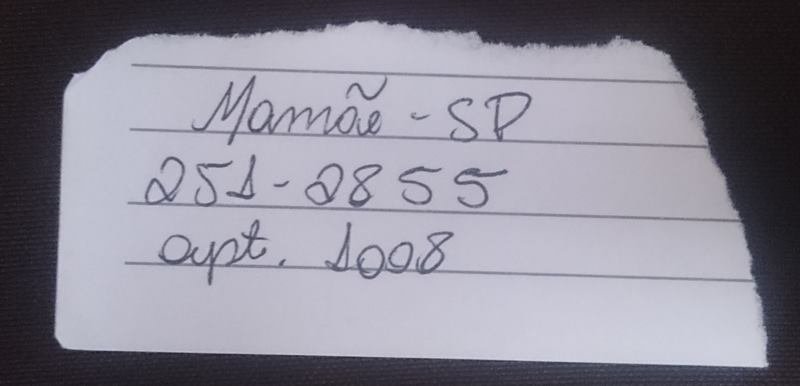 Mamãe - SP
251-2855
apt. 1008